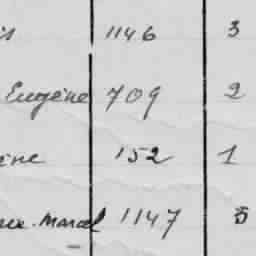 1146 3
Eugène 709 2
152 1
Marcel 1147 5